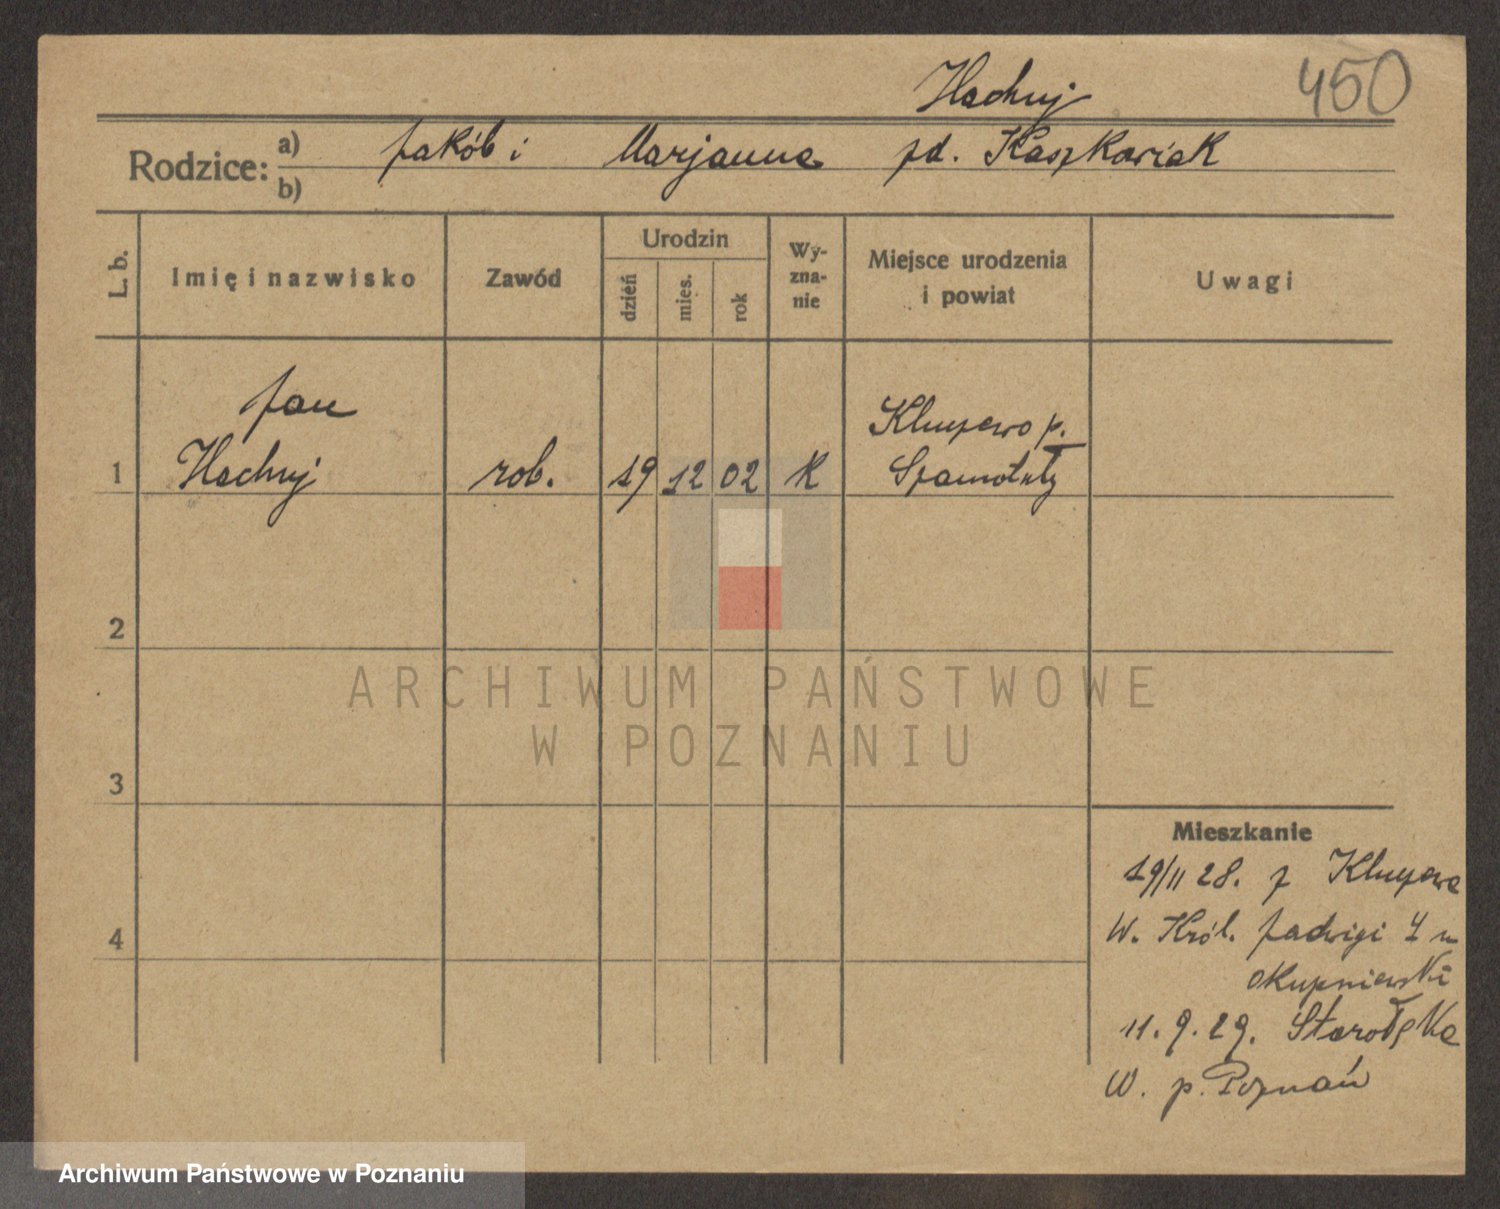 Hachuj
450
Rodzice: a) Jakób i Marjanna zd. Kaszkowiak
b)
L. b.
Imię i nazwisko
Zawód
Urodzin
dzień
mies.
rok
Wy-
zna-
nie
Miejsce urodzenia
i powiat
Uwagi
Jan
1 Hachuj rob. 19 12 02 K
Kluczewo p.
Szamotuły
2
ARCHIWUM PAŃSTWOWE
W POZNANIU
3
Mieszkanie
19/11 28. z Kluczewa
4
W. Król. Jadwigi
11. 9. 29. Starołęka
W. p. Poznań
Archiwum Państwowe w Poznaniu